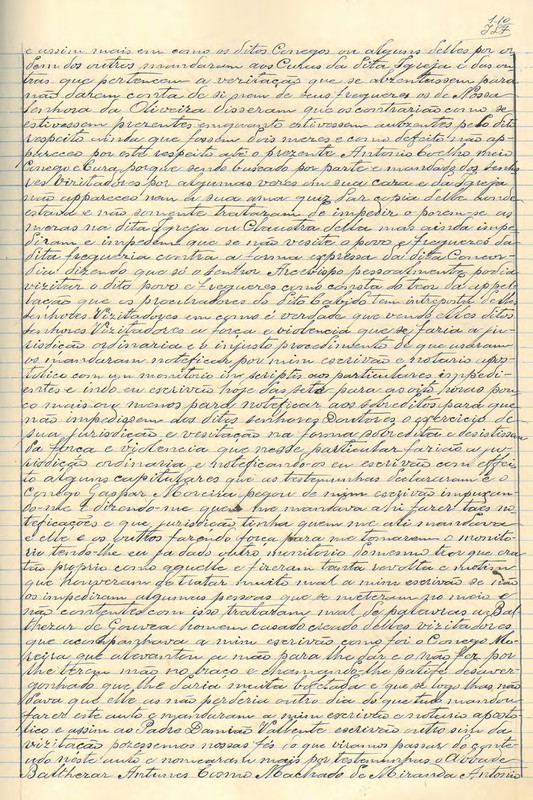 110
e assim mais em como os ditos Conegos ou alguns delles por or
dem dos outros mandaram aos Curas da dita Igreja e das ou
tras que pertencem a vezitação que se abzentassem para
não darem conta de si nem de seus freguezes os de Nossa
Senhora da Oliveira disseram que os contrarião como se
estivessem prezentes emquanto estivessem auzentes pelo dito
respeito ainda que fossem dois mezes e como defeito não ap
pareceo por este respeito até o prezente Antonio Coelho meio
Conego e Cura porque sendo buscado por parte e mandado dos senho
res Vizitadores por algumas vezes em sua caza e da Igreja
não appareceo nem a sua ama quiz dar copia delle honde
estava e não somente trataram de impedir o porem-se as
mezas na dita Igreja ou Claustra della mas ainda impe
diram e impedem que se não vesite o povo e freguezes da
dita freguezia contra a forma expressa da dita Concor-
dia dizendo que só o senhor Arcebispo pessoalmente podia
vizitar o dito povo e freguezes como consta do teor da appel-
lação que os procuradores do dito Cabido tem interposto dos
senhores Vizitadores em como é verdade que vendo elles ditos
senhores Vizitadores a força e violencia que se fazia a ju-
risdição ordinaria e o injusto procedimento de que uzaram
os mandaram noteficar por mim escrivão e notario apos-
tolico com um monitorio in scriptis aos particulares impedi-
entes e indo eu escrivão hoje das sete para as oito horas pou
co mais ou menos para noteficar aos sobreditos para que
não impedissem aos ditos senhores Doutores o exercicio de
sua jurisdição e vezitação na forma sobredita e desistissem
da força e violencia que nesse particular fazião a ju-
risdição ordinaria e noteficando-os eu escrivão com effei
to alguns capitulares que as testemunhas declararam e o
Conego Gaspar Moreira pegou de mim escrivão impuxan-
do-me e dizendo-me que me mandava ahi fazer taes no
teficações e que jurisdição tinha quem me ali mandava
e elle e os outros fazendo força para me tomarem o monito-
rio tendo-lhe eu já dado outro monitorio do mesmo teor que era
tão proprio como aquelle e fizeram tanta revolta e motim
que houveram de tratar muito mal a mim escrivão se não
os impediram algumas pessoas que se meteram no meio e
não contentes com isso trataram mal de palavras a Bal
thezar de Gouvea homem cazado creado delles vizitadores
que acompanhava a mim escrivão como foi o Conego Mo-
reira que alevantou a mão para lhe dar e o não fez por
lhe terem mão no braço e chamando-lhe patife desaver-
gonhado que lhe daria muita bofetada e que se logo lhas não
dava que elle as não perderia outro dia do que tudo mandou
fazer este auto e mandaram a mim escrivão e notario aposto-
lico e assim ao Padre Damião Valente escrivão outro sim da
vizitação pozessemos nossas fés do que viramos passar do conte-
udo neste auto e nomearam mais por testemunhas o Abbade
Balthezar Antunes Cosmo Machado de Miranda Antonio